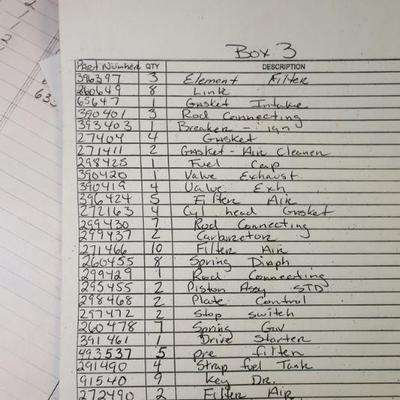 Box 3
Part Number QTY DESCRIPTION
396397 3 Element Filter
260649 8 Link
65647 1 Gasket Intake
390401 3 Rod Connecting
393403 1 Breaker - ign
27404 4 Gasket
271411 2 Gasket - Air Cleaner
298425 1 Fuel Cap
390420 1 Valve Exhaust
390419 4 Valve Exh
396424 5 Filter Air
272163 4 Cyl head Gasket
299430 7 Rod Connecting
299437 2 Carburetor
271466 10 Filter Air
260455 8 Spring Diaph
299429 1 Rod Connecting
295455 2 Piston Assy STD
298468 2 Plate Control
297472 2 Stop switch
260478 7 Spring Gov
391461 1 Drive Starter
493537 5 pre filter
291490 4 Strap fuel Tank
91540 9 Key Dr.
272490 2 Filter Air